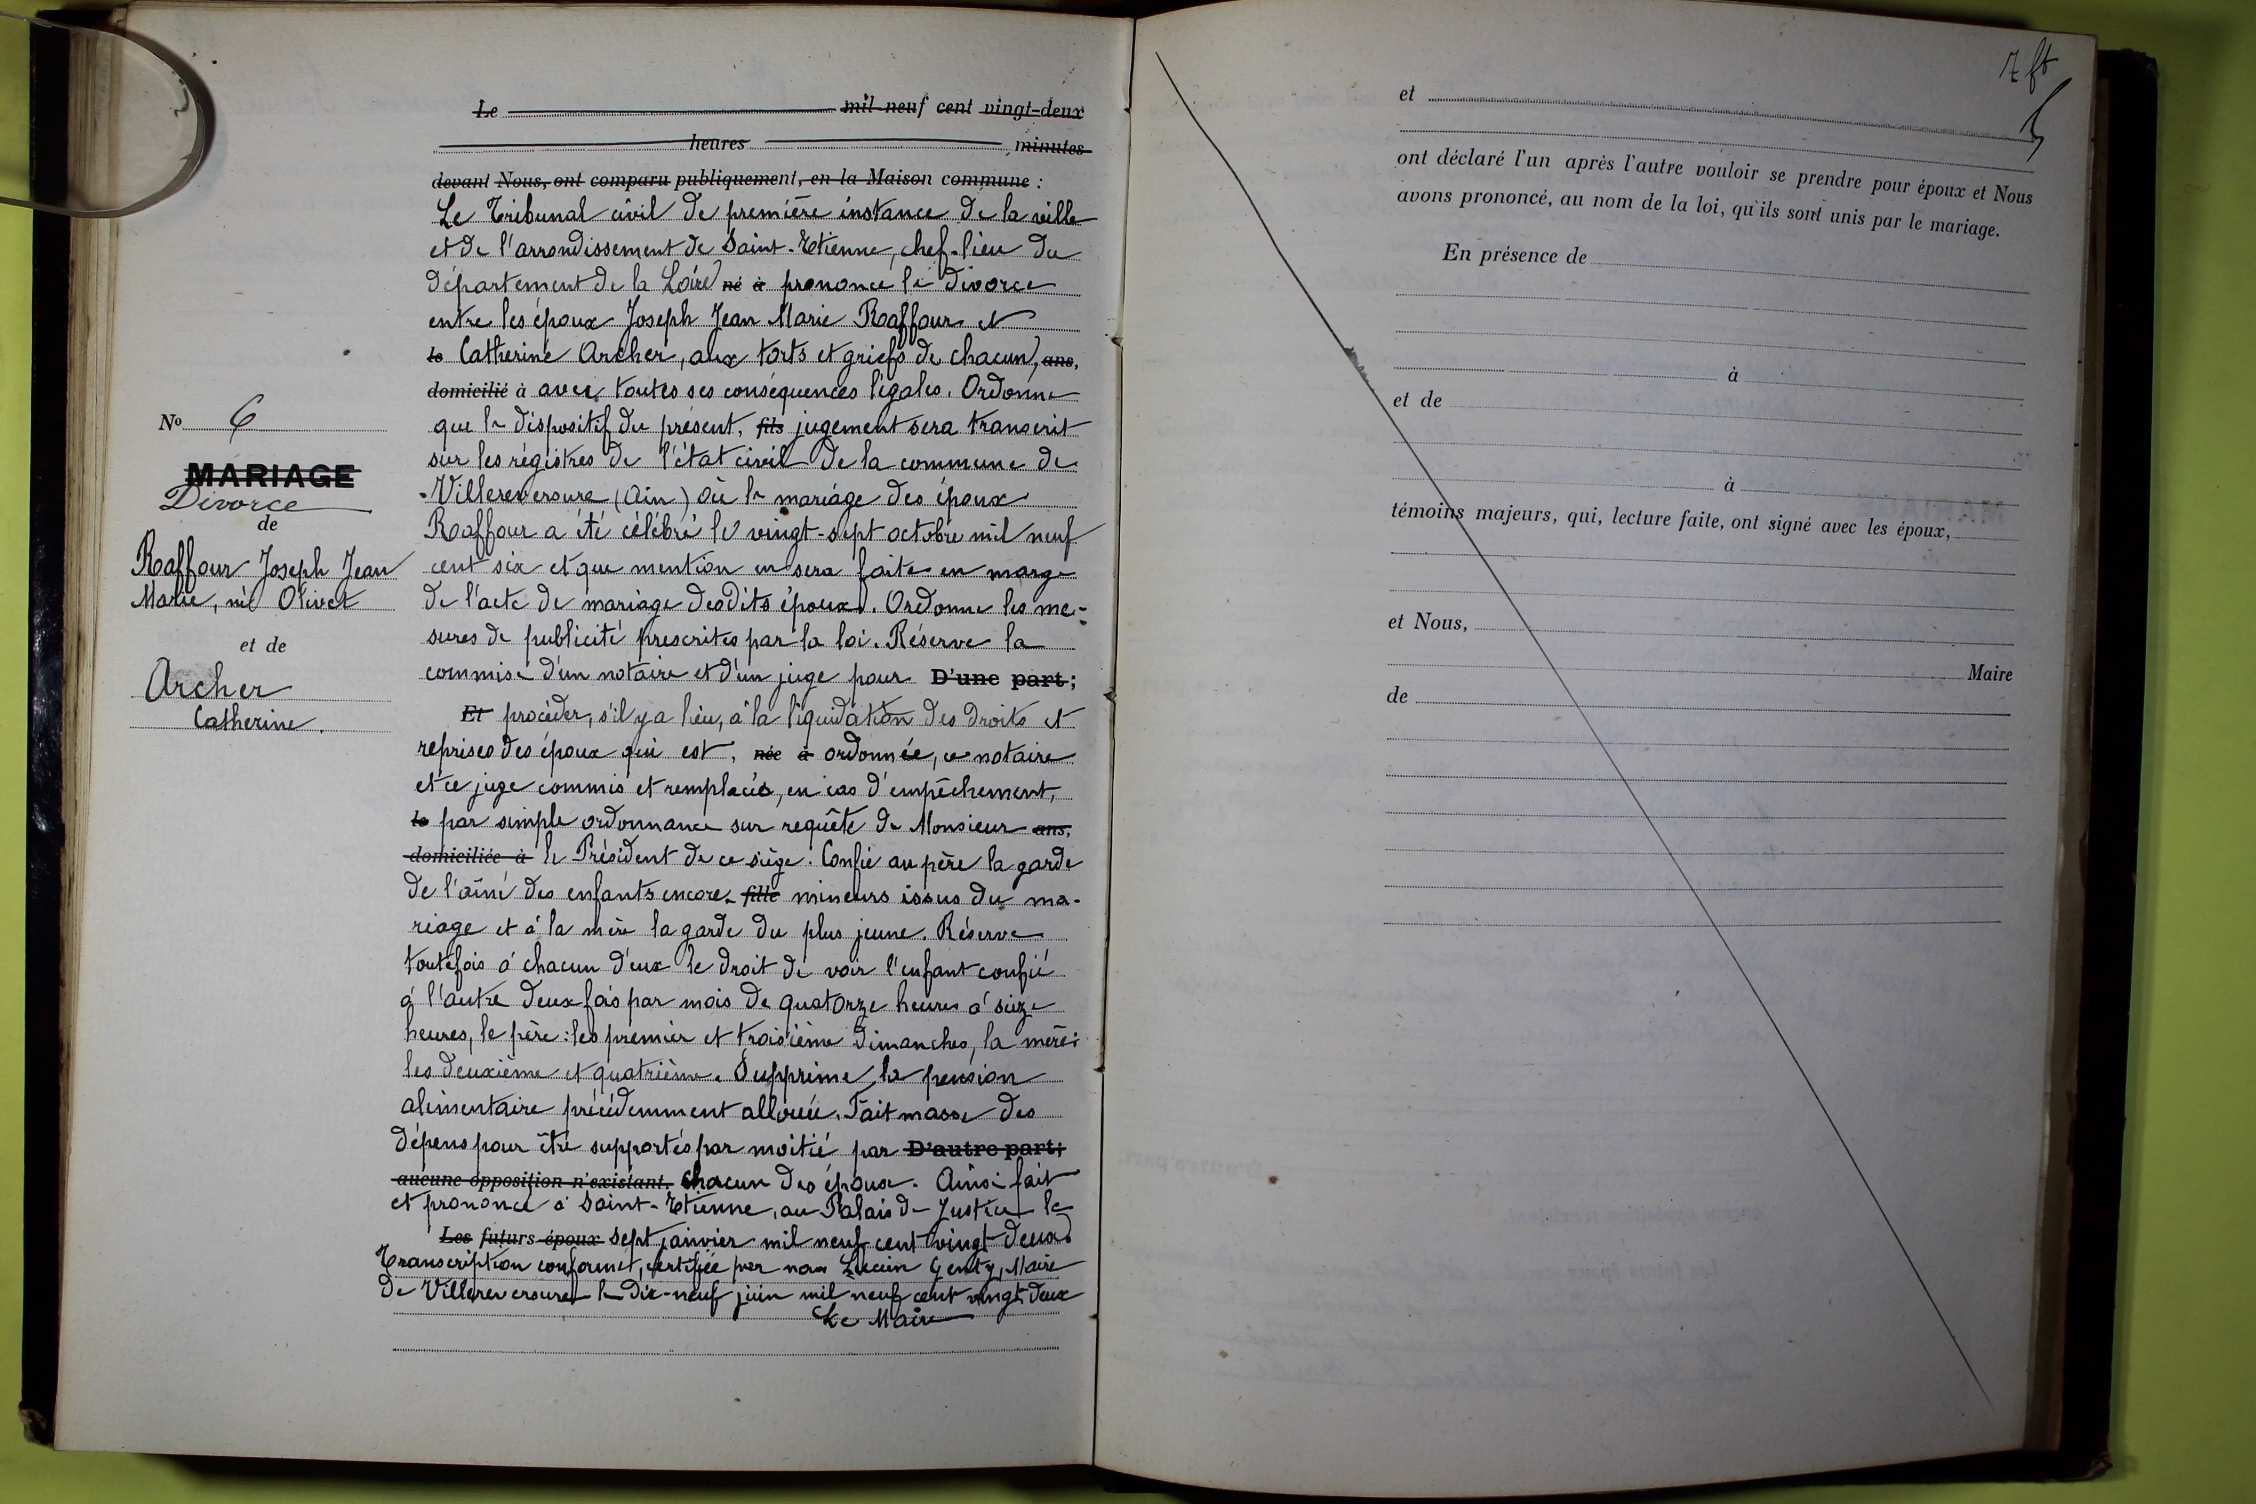 Le mil neuf cent vingt-deux
heures minutes
devant Nous, ont comparu publiquement, en la Maison commune :
Le Tribunal civil de première instance de la ville
et de l'arrondissement de Saint-Etienne, chef-lieu du
département de la Loire né à prononce le divorce
entre les époux Joseph Jean Marie Raffour et
le Catherine Archer, aux torts et griefs de chacun, ans,
domicilié à avec toutes ses conséquences légales. Ordonne
que le dispositif du présent, fils jugement sera transcrit
sur les régistres de l'état civil de la commune de
Villereversure (Ain) où le mariage des époux
Raffour a été célébré le vingt-sept octobre mil neuf
cent six et que mention en sera faite en marge
de l'acte de mariage desdits époux. Ordonne les me-
sures de publicité prescrites par la loi. Réserve la
commise d'un notaire et d'un juge pour D'une part ;
Et procéder, s'il y a lieu, à la liquidation des droits et
reprises des époux qui est, née à ordonnée, ce notaire
et ce juge commis et remplacés, en cas d'empêchement,
le par simple ordonnance sur requête de Monsieur ans,
domiciliée à le Président de ce siège. Confie au père la garde
de l'aîné des enfants encore fille mineurs issus du ma-
riage et à la mère la garde du plus jeune. Réserve
toutefois à chacun d'eux le droit de voir l'enfant confié
à l'autre deux fois par mois de quatorze heures à seize
heures, le père : les premier et troisième dimanches, la mère :
les deuxième et quatrième. Supprime la pension
alimentaire précédemment allouée. Fait masse des
dépens pour être supportés par moitié par D'autre part ;
aucune opposition n'existant. chacun des époux. Ainsi fait
et prononcé à Saint-Etienne, au Palais de Justice le
Les futurs époux sept janvier mil neuf cent vingt deux
Transcription conforme, certifiée par nous Lucien Genty, Maire
de Villereversure le dix-neuf juin mil neuf cent vingt deux
Le Maire
No 6
MARIAGE
Divorce
de
Raffour Joseph Jean
Marie, né Olivet
et de
Archer
Catherine.
7 ft
et
ont déclaré l'un après l'autre vouloir se prendre pour époux et Nous
avons prononcé, au nom de la loi, qu'ils sont unis par le mariage.
En présence de
à
et de
à
témoins majeurs, qui, lecture faite, ont signé avec les époux,
et Nous,
Maire
de